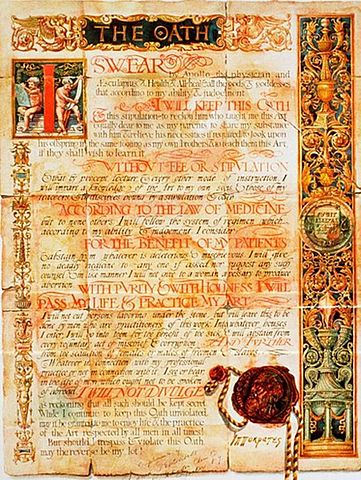 THE OATH
I SWEAR
by Apollo the physician, and
Æsculapius, & Health, & All-heal & all the gods & goddesses
that according to my ability & judgement
I WILL KEEP THIS OATH
& this stipulation—to reckon him who taught me this Art
equally dear to me as my parents, to share my substance
with him & relieve his necessities if required, to look upon
his offspring in the same footing as my own brothers & to teach them this Art,
if they shall wish to learn it
WITHOUT FEE OR STIPULATION
& that by precept, lecture & every other mode of instruction, I
will impart a knowledge of the Art to my own sons & those of my
teachers & to disciples bound by a stipulation & oath
ACCORDING TO THE LAW OF MEDICINE
but to none others. I will follow that system of regimen which
according to my ability & judgement I consider
FOR THE BENEFIT OF MY PATIENTS
& abstain from whatever is deleterious & mischievous. I will give
no deadly medicine to any one if asked nor suggest any such
counsel & in like manner I will not give to a woman a pessary to produce
abortion
WITH PURITY & WITH HOLINESS I WILL
PASS MY LIFE & PRACTICE MY ART
I will not cut persons laboring under the stone, but will leave this to be
done by men who are practitioners of this work. Into whatever houses
I enter, I will go into them for the benefit of the sick & will abstain from
every voluntary act of mischief & corruption AND FURTHER
from the seduction of females or males, of freemen & slaves.
Whatever in connection with my professional
practice or not in connection with it I see or hear
in the life of men which ought not to be spoken
of abroad I WILL NOT DIVULGE
as reckoning that all such should be kept secret
While I continue to keep this Oath unviolated
may it be granted to me to enjoy life & the practice
of the Art respected by all men in all times!
But should I trespass & violate this Oath
may the reverse be my lot!